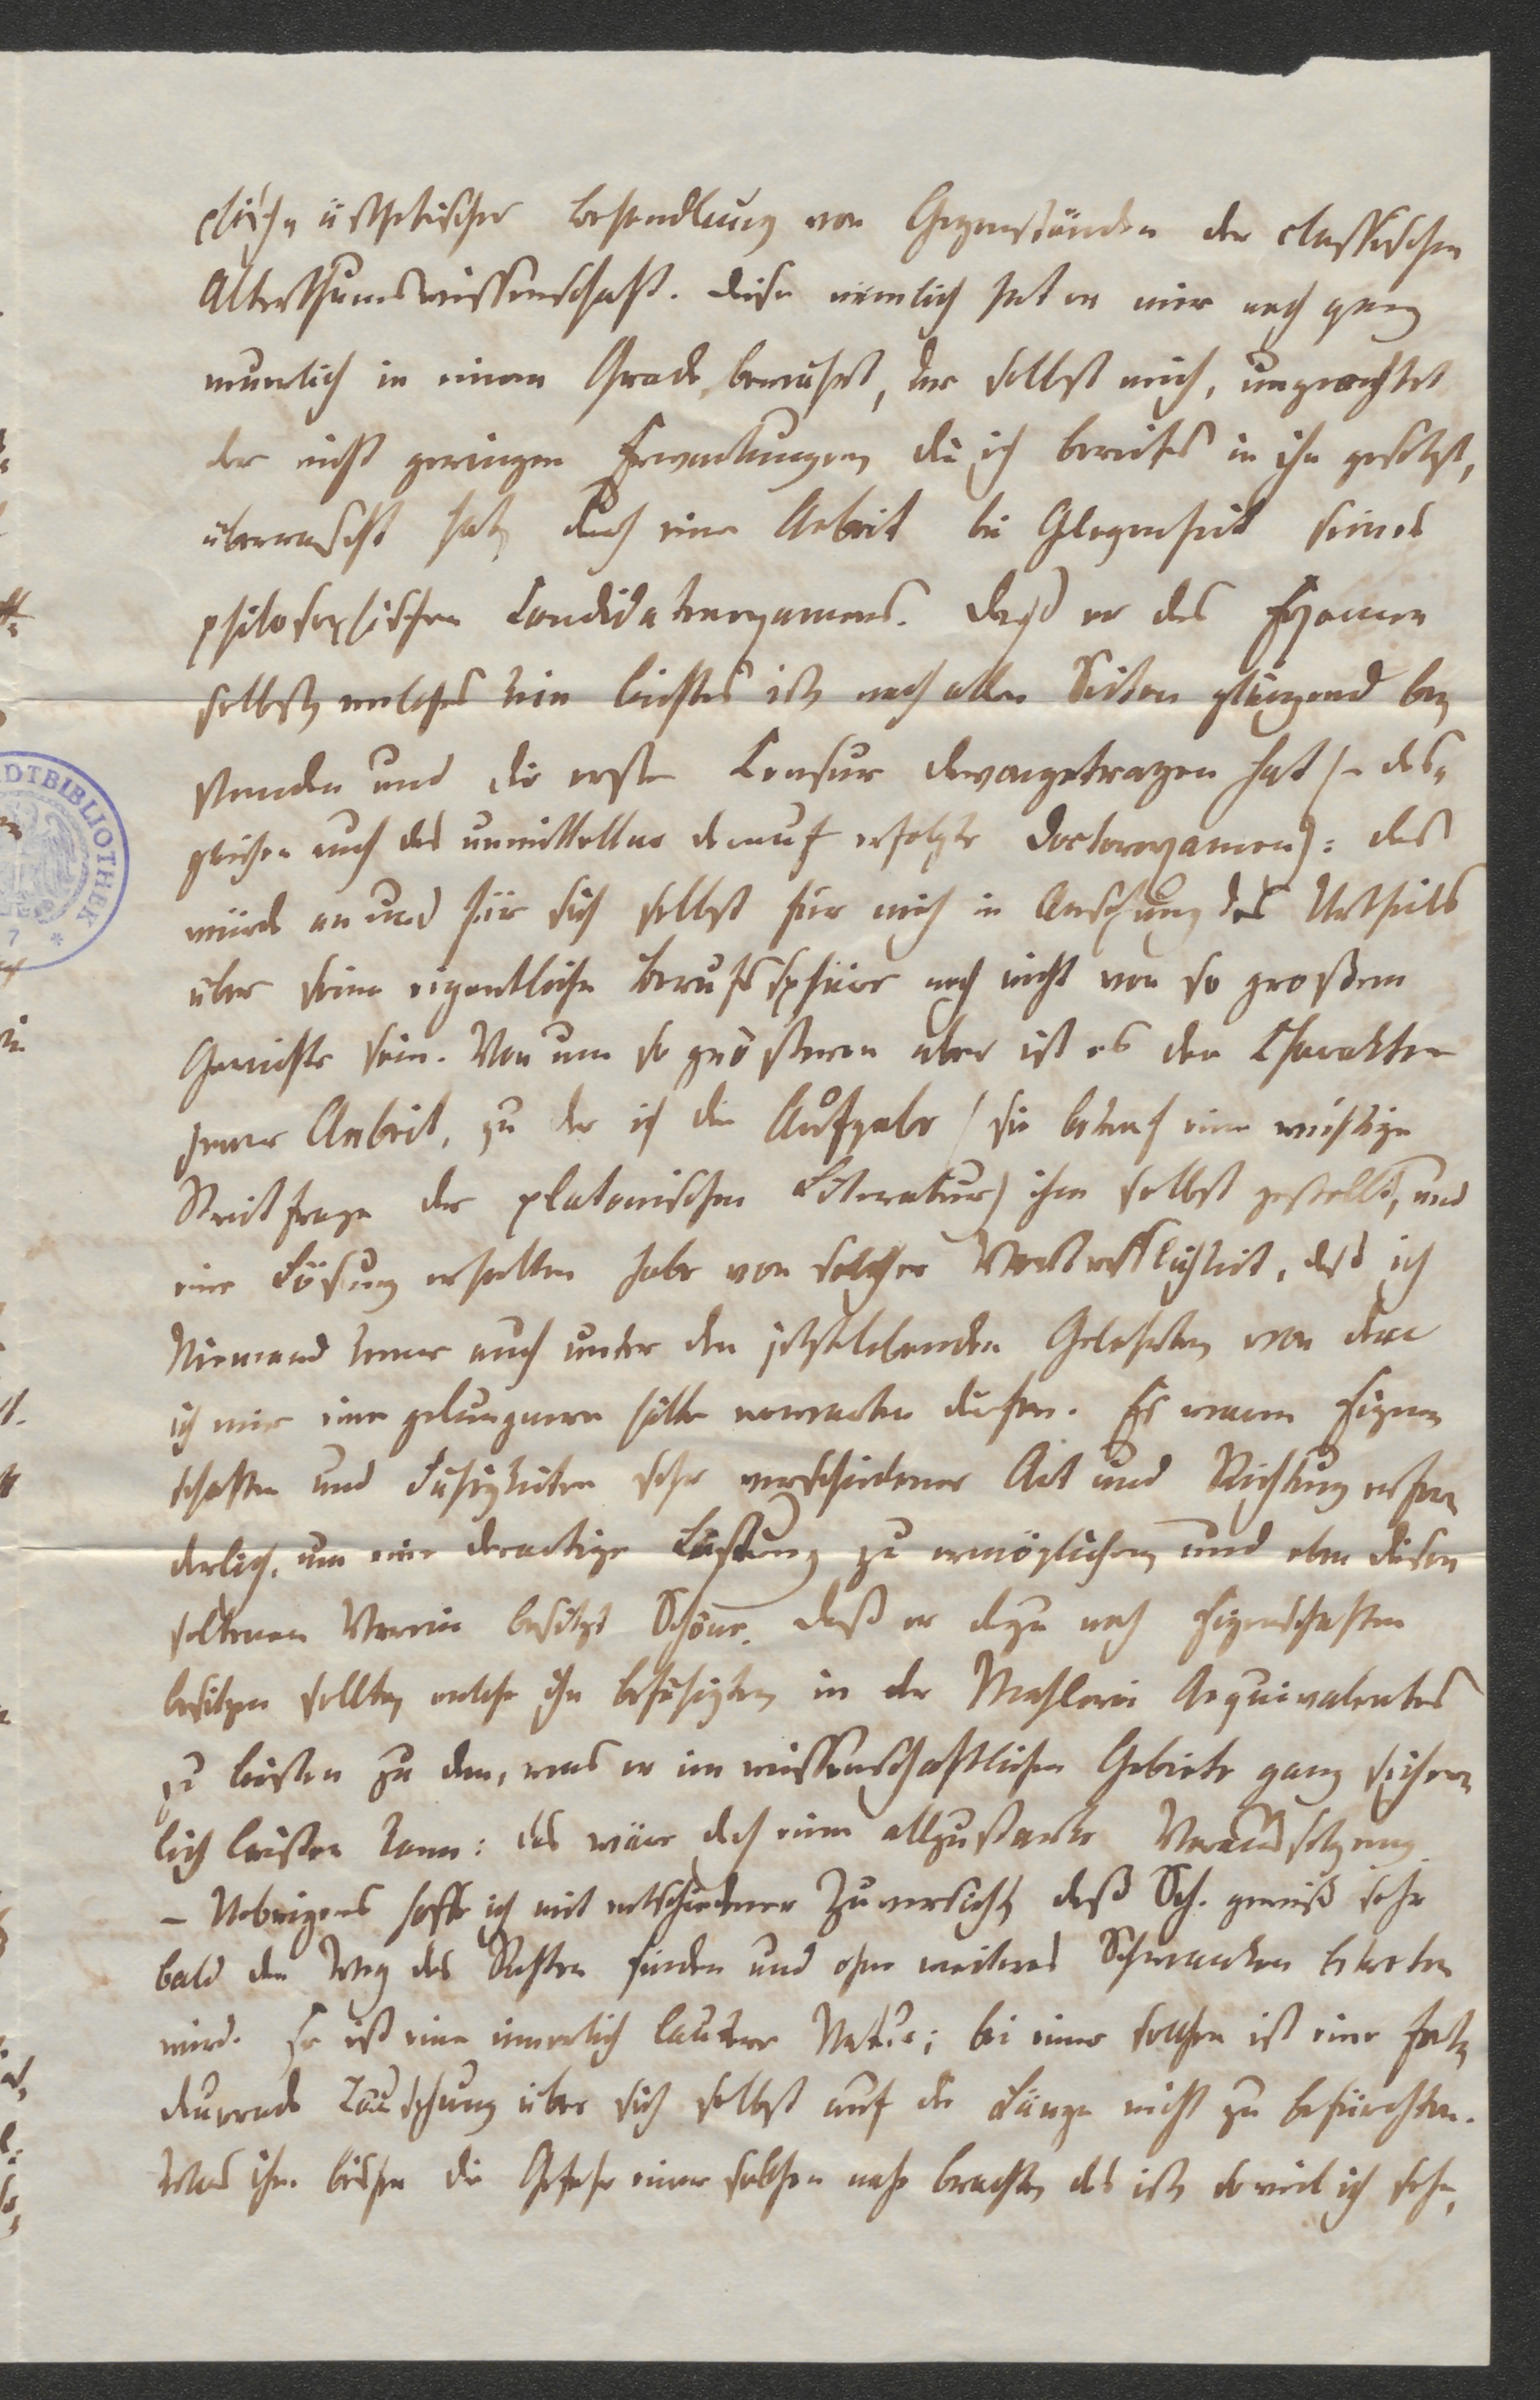 ästhetischer Behandlung von Gegenständen der classischen
Alterthumswissenschaft. Diese nämlich hat er mir noch ganz
neuerlich in einem Grade bewährt, der selbst mich, ungeachtet
der nicht geringen Erwartungen die ich bereits in ihn gesetzt,
überrascht hat, durch eine Arbeit bei Glegenheit seines
philosophischen Candidatenexamens. Daß er das Examen
selbst, welches kein leichtes ist, nach allen Seiten glänzend be-
standen und die erste Censur davongetragen hat (– des-
gleichen auch das unmittelbar darauf erfolgte Doctorexamen): das
würde an und für sich selbst für mich in Ansehung des Urtheils
über seine eigentliche Berufssphäre noch nicht von so großem
Gewichte sein. Von um so größerem aber ist es der Charakter
jener Arbeit, zu der ich die Aufgabe (sie betraf eine wichtige
Streitfrage der platonischen Literatur) ihm selbst gestellt, und
eine Lösung erhalten habe von solcher Vortrefflichkeit, daß ich
Niemand kenne auch unter den jetztlebenden Gelehrten, von dem
ich mir eine gelungnere hätte erwarten dürfen. Es waren Eigen-
schaften und Fähigkeiten sehr verschiedener Art und Richtung erfor-
derlich, um eine derartige Leistung zu ermöglichen, und eben diesen
seltenen Verein besitzt Schöne. Daß er dazu noch Eigenschaften
besitzen sollte, welche ihn befähigten, in der Mahlerei Aequivalentes
zu leisten zu dem, was er im wissenschaftlichen Gebiete ganz sicher-
lich leisten kann: das wäre doch eine allzustarke Voraussetzung.
– Uebrigens hoffe ich mit entschiedener Zuversicht, daß Sch. gewiß sehr
bald den Weg des Rechten finden und ohne weiteres Schwanken betreten
wird. Er ist eine innerlich lautere Natur; bei einer solchen ist eine fort-
dauernde Täuschung über sich selbst auf die Länge nicht zu befürchten.
Was ihm bisher die Gefahr einer solchen nahe brachte, das ist, soviel ich sehe,
DTBIBLIOTHEK